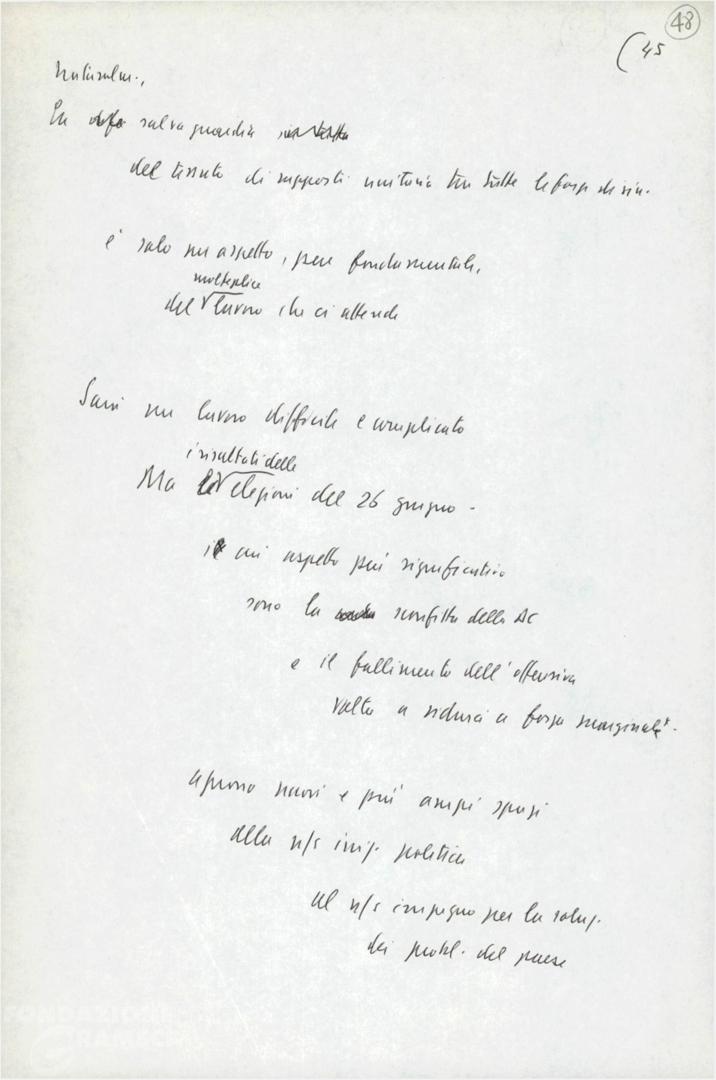 48
(45
Naturalm.,
la salvaguardia
del tessuto di rapporti unitari tra tutte le forze di sin.
è solo un aspetto, pure fondamentale,
molteplice
del lavoro che ci attende
Sarà un lavoro difficile e complicato
i risultati delle
Ma le elezioni del 26 giugno -
il cui aspetto più significativo
sono la sconfitta della DC
e il fallimento dell'offensiva
volta a ridurci a forza marginale -
aprono nuovi e più ampi spazi
alla n/s iniz. politica
al n/s impegno per la soluz.
dei probl. del paese
FONDAZIONE
GRAMSCI